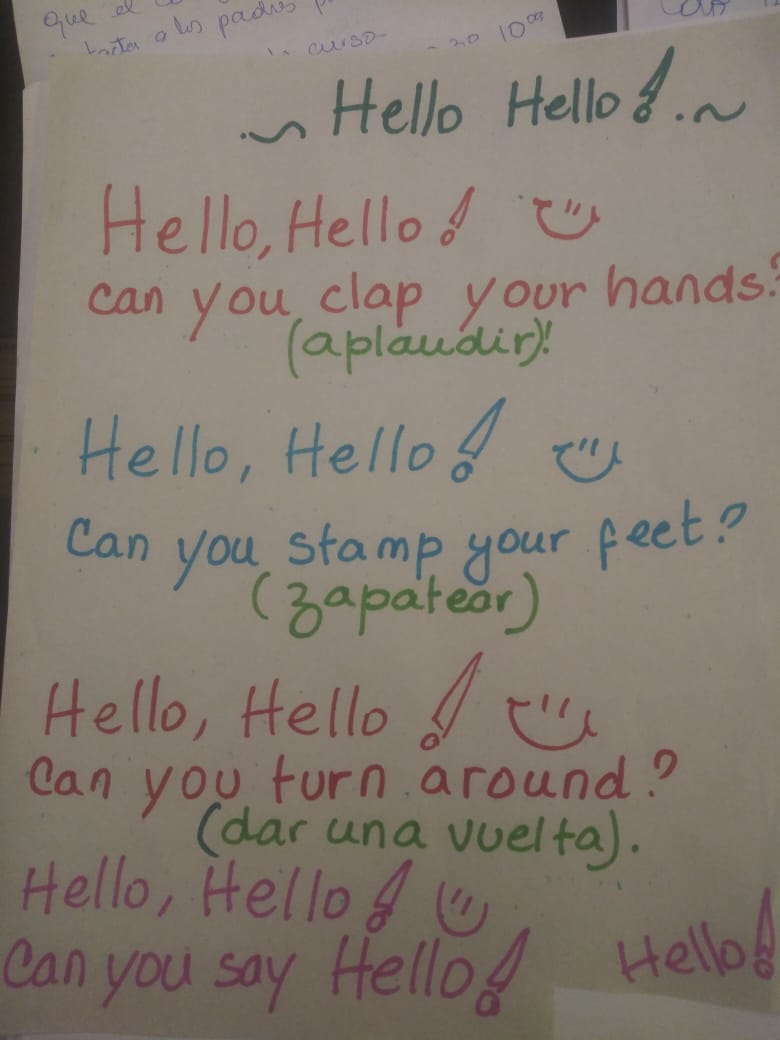 que el
a los padres
curso 10:00
Hello Hello!
Hello, Hello!
can you clap your hands?
(aplaudir)!
Hello, Hello!
Can you stamp your feet?
(zapatear)
Hello, Hello!
Can you turn around?
(dar una vuelta).
Hello, Hello!
Can you say Hello! Hello!